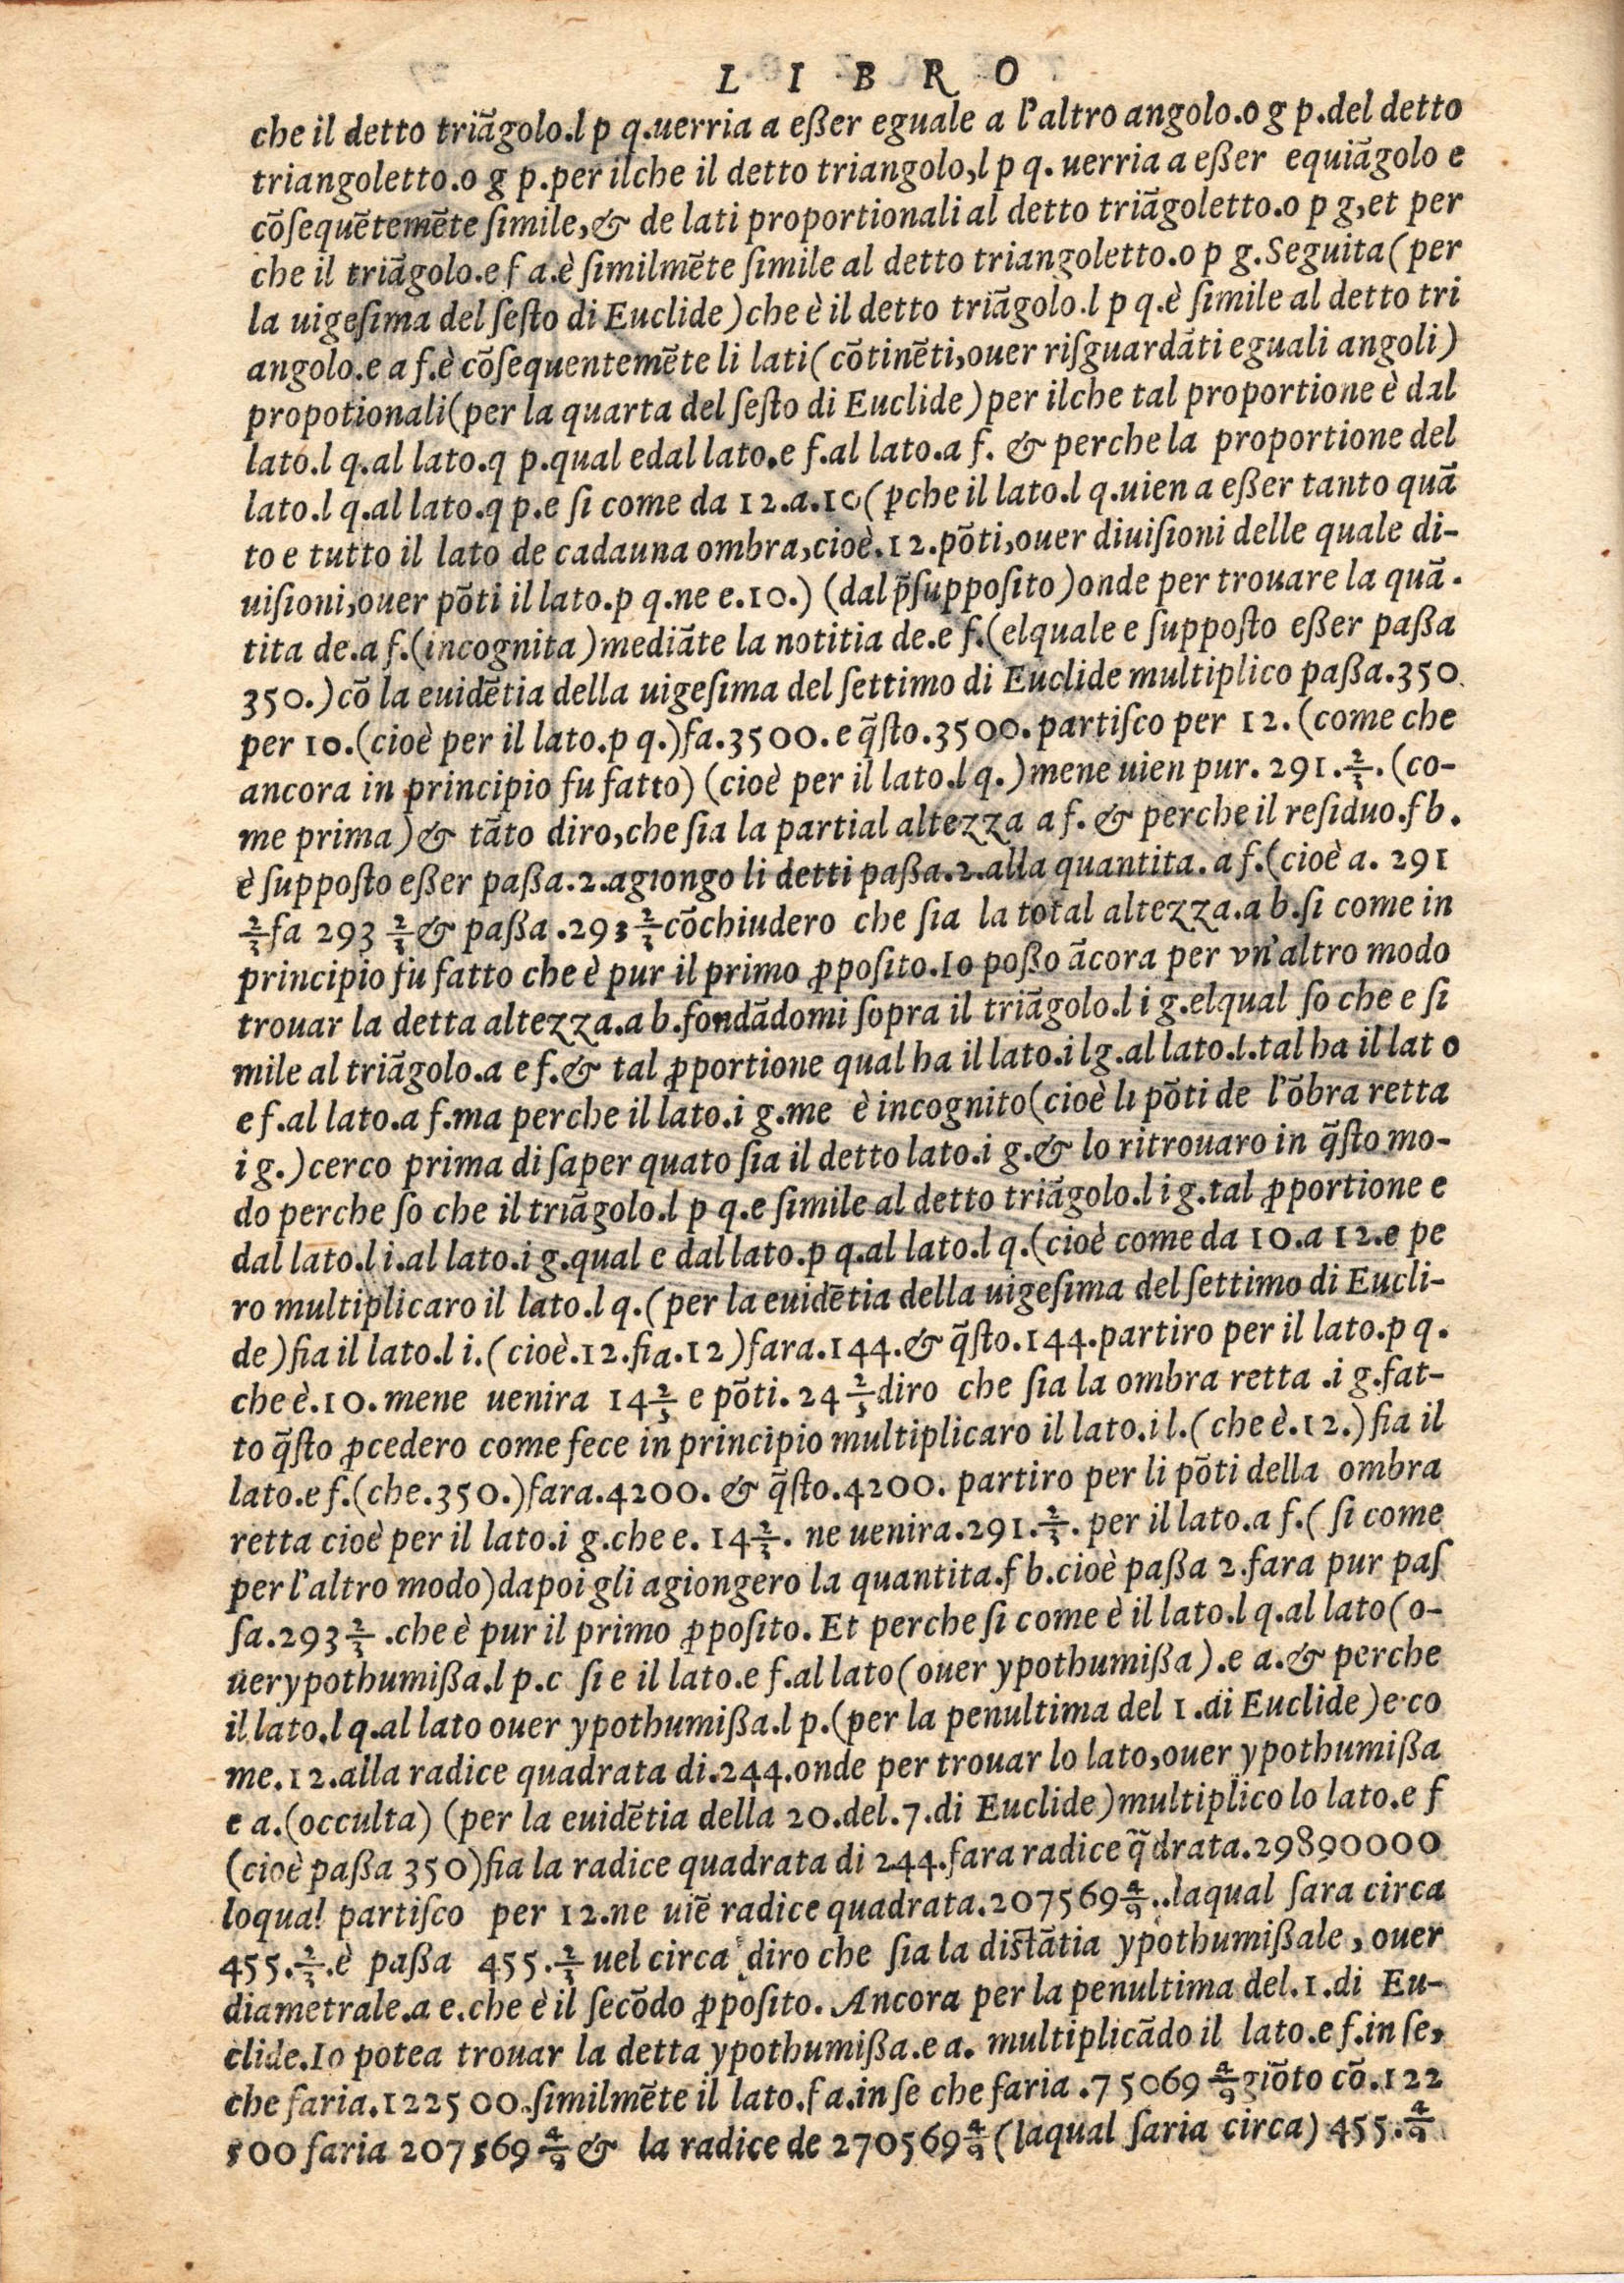 LIBRO
che il detto triãgolo.l p q.uerria a eßer eguale a l'altro angolo.o g p.del detto
triangoletto.o g p.per ilche il detto triangolo,l p q. uerria a eßer equiãgolo e
cõſequẽtemẽte ſimile,& de lati proportionali al detto triãgoletto.o p g,et per
che il triãgolo.e f a.è ſimilmẽte ſimile al detto triangoletto.o p g.Seguita(per
la uigeſima del ſeſto di Euclide)che è il detto triãgolo.l p q.è ſimile al detto tri
angolo.e a f.è cõſequentemẽte li lati(cõtinẽti,ouer riſguardãti eguali angoli)
propotionali(per la quarta del ſeſto di Euclide)per ilche tal proportione è dal
lato.l q.al lato.q p.qual edal lato.e f.al lato.a f. & perche la proportione del
lato.l q.al lato.q p.e ſi come da 12.a.10(ꝑche il lato.l q.uien a eßer tanto quã
to e tutto il lato de cadauna ombra,cioè.12.põti,ouer diuiſioni delle quale di-
uiſioni,ouer põti il lato.p q.ne e.10.) (dal p̃ſuppoſito)onde per trouare la quã.
tita de.a f.(incognita)mediãte la notitia de.e f.(elquale e ſuppoſto eßer paßa
350.)cõ la euidẽtia della uigeſima del ſettimo di Euclide multiplico paßa.350.
per 10.(cioè per il lato.p q.)fa.3500.e q̃ſto.3500.partiſco per 12.(come che
ancora in principio fu fatto) (cioè per il lato.l q.)mene uien pur. 291.2/3.(co-
me prima)& tãto diro,che ſia la partial altezza a f. & perche il reſiduo.f b.
è ſuppoſto eßer paßa.2.agiongo li detti paßa.2.alla quantita.a f.(cioè a. 291
2/3 fa 293 2/3 & paßa .293 2/3 cõchiudero che ſia la total altezza.a b.ſi come in
principio fu fatto che è pur il primo ꝓpoſito.Io poßo ãcora per vn'altro modo
trouar la detta altezza.a b.fondãdomi ſopra il triãgolo.l i g.elqual ſo che e ſi
mile al triãgolo.a e f.& tal ꝓportione qual ha il lato.i lg.al lato.l.tal ha il lat o
e f.al lato.a f.ma perche il lato.i g.me è incognito(cioè li põti de l'õbra retta
i g.)cerco prima di ſaper quato ſia il detto lato.i g.& lo ritrouaro in q̃ſto mo-
do perche ſo che il triãgolo.l p q.e ſimile al detto triãgolo.l i g.tal ꝓportione e
dal lato.l i.al lato.i g.qual e dal lato.p q.al lato.l q.(cioè come da 10.a 12.e pe
ro multiplicaro il lato.l q.(per la euidẽtia della uigeſima del ſettimo di Eucli-
de)fia il lato.l i.(cioè.12.fia.12)fara.144.& q̃ſto.144.partiro per il lato.p q.
che è.10.mene uenira 14 2/5 e põti.24 2/5 diro che ſia la ombra retta .i g.fat-
to q̃ſto ꝓcedero come fece in principio multiplicaro il lato.i l.(che è.12.)fia il
lato.e f.(che.350.)fara.4200. & q̃ſto.4200. partiro per li põti della ombra
retta cioè per il lato.i g.che e. 14 2/3. ne uenira.291.2/3. per il lato.a f.( ſi come
per l'altro modo)dapoi gli agiongero la quantita.f b.cioè paßa 2.fara pur paſ
ſa.293 2/3 .che è pur il primo ꝓpoſito. Et perche ſi come è il lato.l q.al lato(o-
uer ypothumißa.l p.c ſi e il lato.e f.al lato(ouer ypothumißa).e a.& perche
il lato.l q.al lato ouer ypothumißa.l p.(per la penultima del 1.di Euclide)e co
me.12.alla radice quadrata di.244.onde per trouar lo lato,ouer ypothumißa
e a.(occulta) (per la euidẽtia della 20.del.7.di Euclide)multiplico lo lato.e f
(cioè paßa 350)fia la radice quadrata di 244.fara radice q̃drata.29890000
loqual partiſco per 12.ne uiẽ radice quadrata.207569 4/9..laqual ſara circa
455.2/3.è paßa 455.2/3 uel circa diro che ſia la diſtãtia ypothumißale, ouer
diametrale.a e.che è il ſecõdo ꝓpoſito. Ancora per la penultima del.1.di Eu-
clide.Io potea trouar la detta ypothumißa.e a. multiplicãdo il lato.e f.in ſe,
che faria.122500.ſimilmẽte il lato.f a.in ſe che faria .75069 4/9 giõto cõ.122
500 faria 207569 4/9 & la radice de 270569 4/9 (laqual ſaria circa) 455.4/9